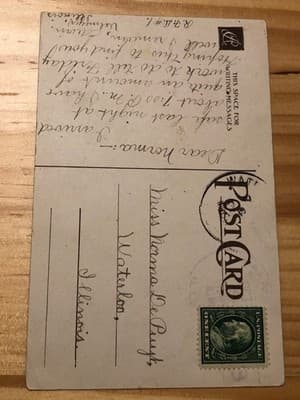 THIS SPACE FOR
WRITING MESSAGES
POST CARD
U.S. POSTAGE
ONE CENT
Dear Norma:- I arrived
safe last night at
about 7:30 P.M. I have
quite an amount of
work to do till Friday
Hoping this to find you
well I remain,
Illinois
R.F.D. #1.
Miss Norma DePuyt,
Waterloo,
Illinois.